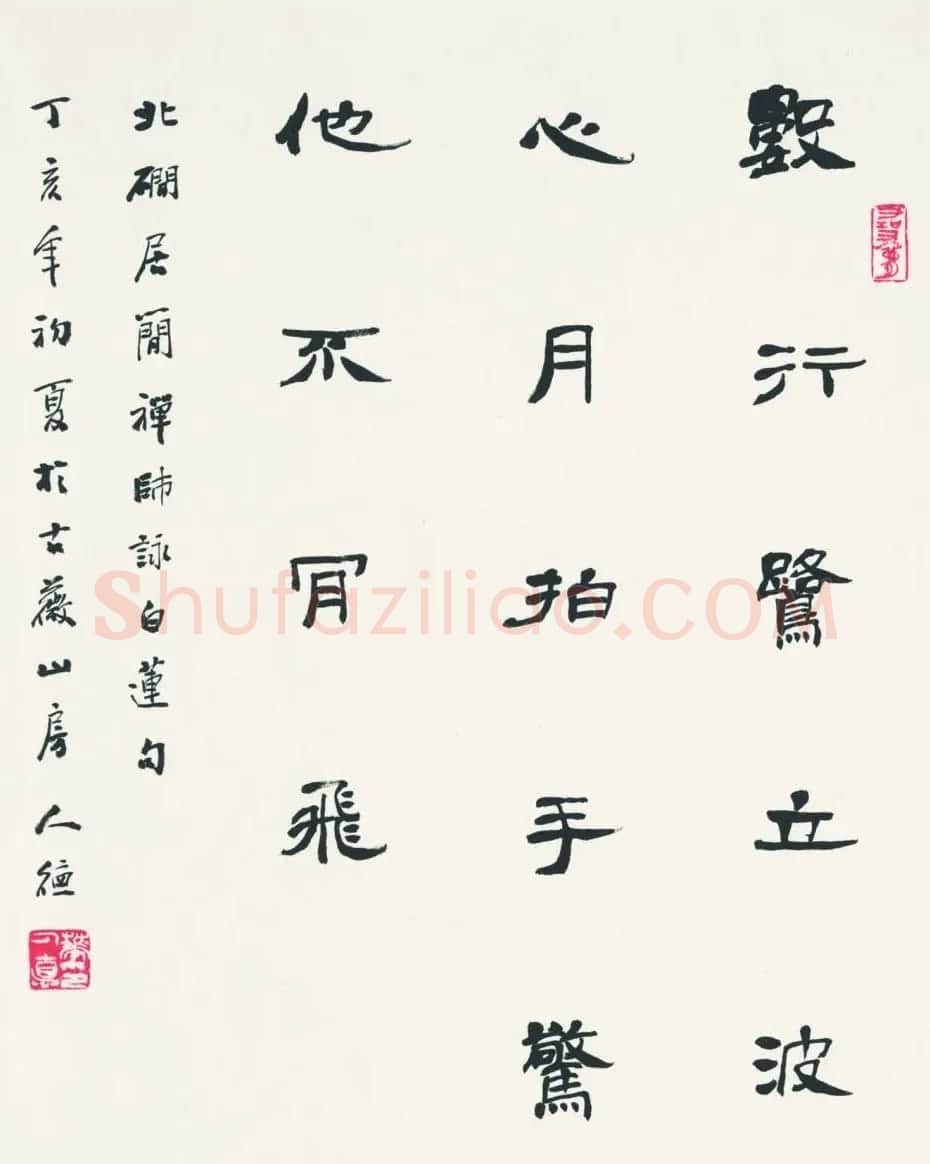 數行鷺立波
心月拍手驚
他不肎飛
北磵居簡禪師詠白蓮句
丁亥年初夏於古薇山房 人德
Shufaziliao.com